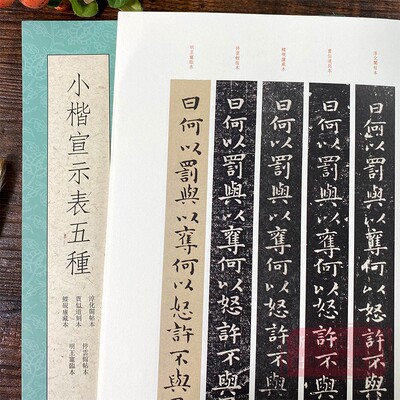 小楷宣示表五種
淳化閣帖本
賈似道刻本
藏本
停雲館帖本
明王寵臨本
淳化閣帖本
賈似道刻本
藏本
停雲館帖本
明王寵臨本
曰何以罰與以奪何以怒許不與
曰何以罰與以奪何以怒許不與
曰何以罰與以奪何以怒許不與
曰何以罰與以奪何以怒許不與
曰何以罰與以奪何以怒許不與